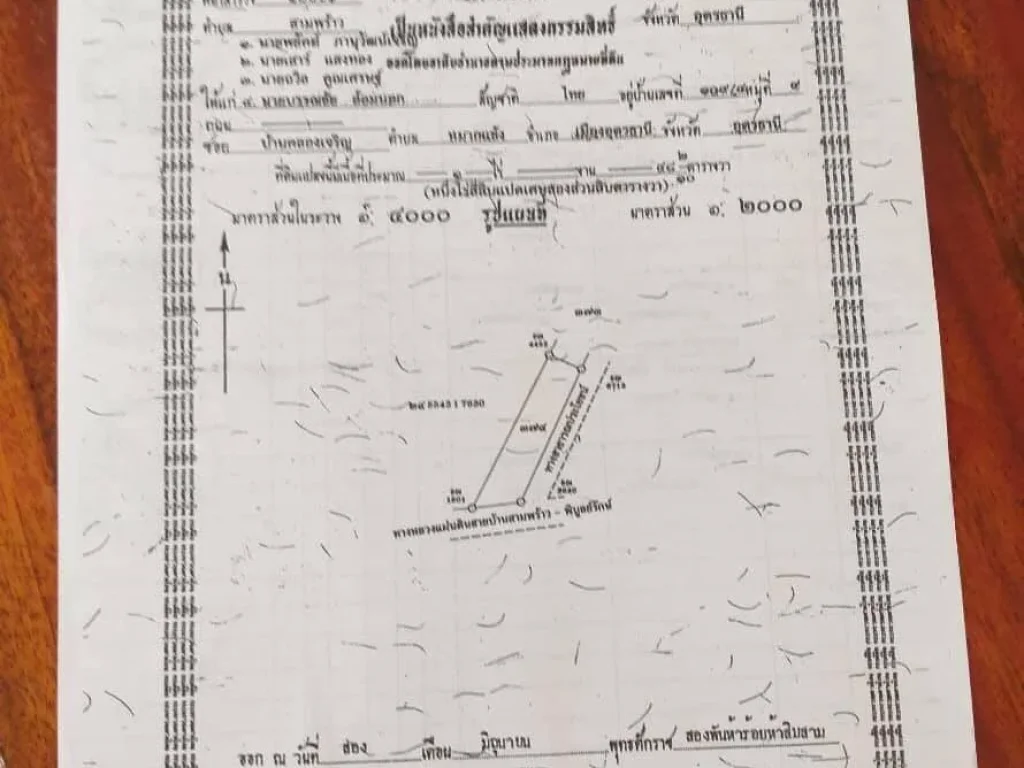 ตำบล สามพร้าว เป็นหนังสือสำคัญแสดงกรรมสิทธิ์ จังหวัด อุดรธานี
๑. นายพลักค์ ภานุวัฒน์
๒. นายเสาร์ แสงทอง ออกโดยอาศัยอำนาจตามประมวลกฎหมายที่ดิน
๓. นายถวิล
ให้แก่ ๔. นายบรรณชัย สัญชาติ ไทย อยู่บ้านเลขที่ หมู่ที่ ๙
ถนน
ซอย บ้านคลองเจริญ ตำบล หมากแข้ง อำเภอ เมืองอุดรธานี จังหวัด อุดรธานี
ที่ดินแปลงนี้มีเนื้อที่ประมาณ ๑ ไร่ งาน ๔๘ ๒/๑๐ ตารางวา
(หนึ่งไร่สี่สิบแปดเศษสองส่วนสิบตารางวา)
มาตราส่วนในระวาง ๑: ๔๐๐๐ รูปแผนที่ มาตราส่วน ๑: ๒๐๐๐
น
๓๗๓
๓๗๔
ทางสาธารณประโยชน์
ทางหลวงแผ่นดินสายบ้านสามพร้าว - พิบูลย์รักษ์
ออก ณ วันที่ สอง เดือน มิถุนายน พุทธศักราช สองพันห้าร้อยห้าสิบสาม